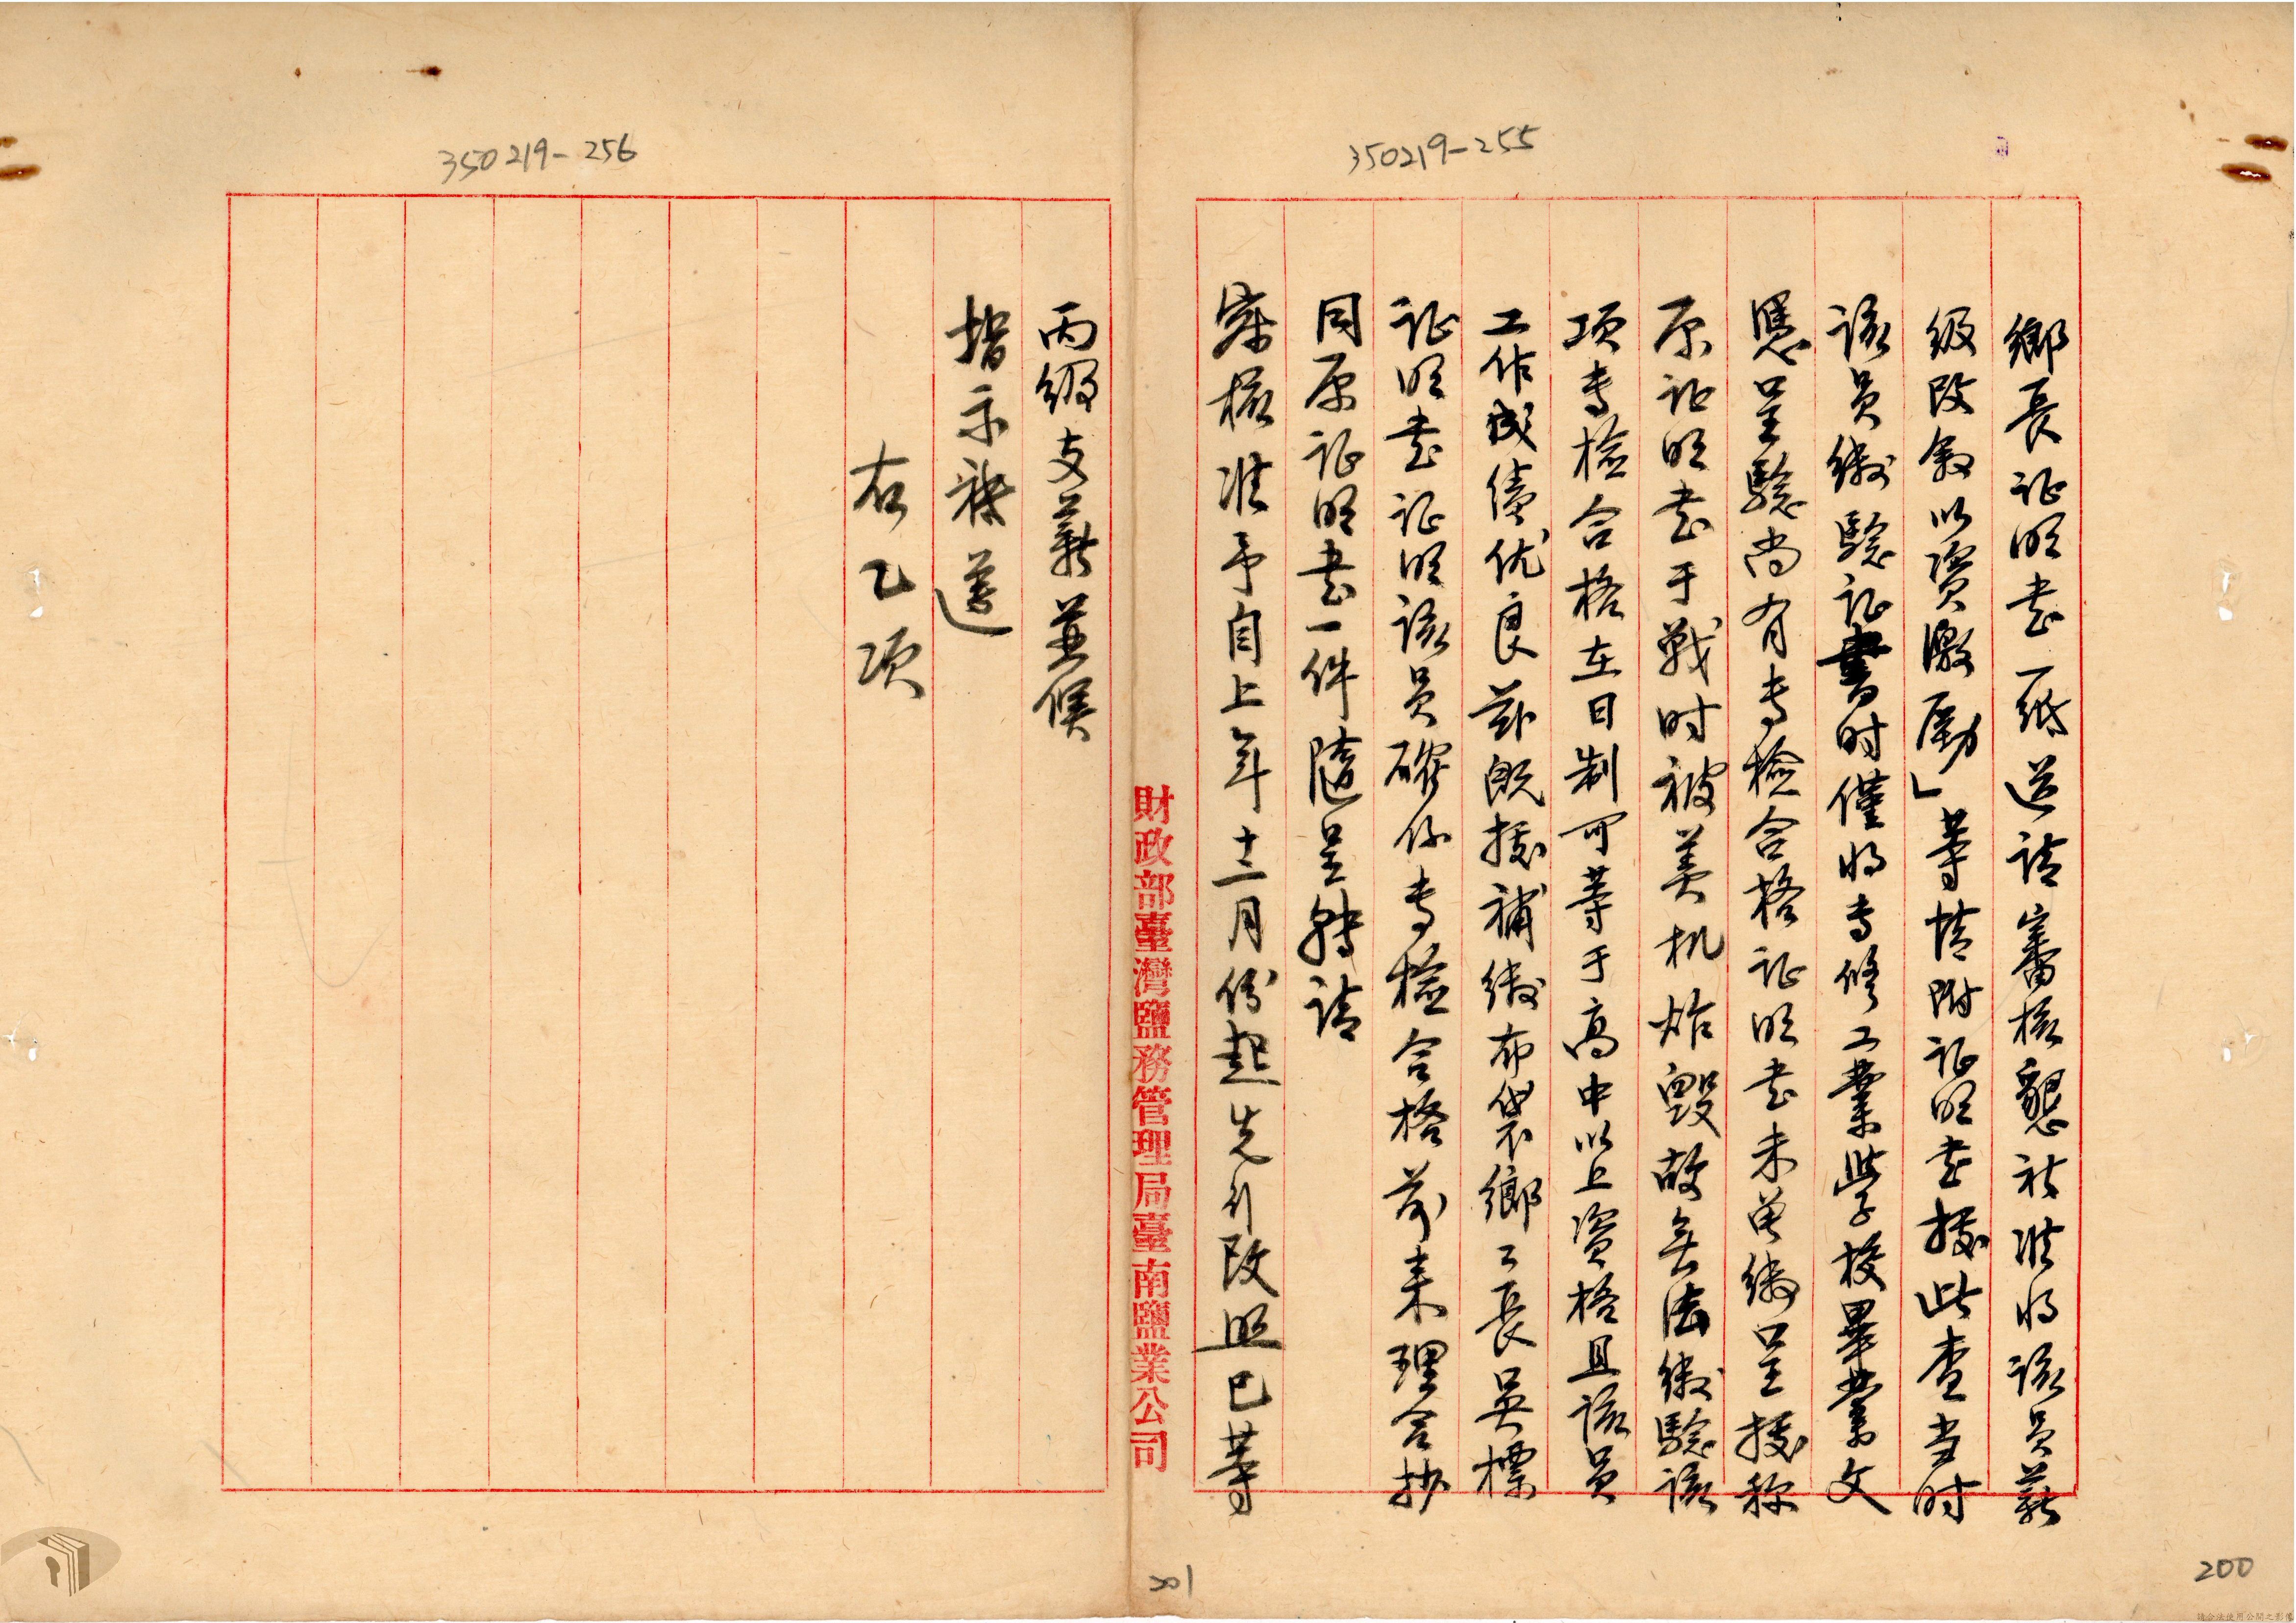 350219-255
鄉長证明書一紙送請審核懇祈准将該員薪
级改敘以資激勵」等情附证明書據此查当时
該員缴驗证書时僅将专修工業学校畢業文
憑呈驗尚有专檢合格证明書未曾缴呈據称
原证明書于戰时被美机炸毁故無法缴驗該
項专檢合格在日制可等于高中以上資格且該員
工作成績优良兹既據補缴布袋鄉鄉長吳標
证明書证明該員確係专檢合格前来理合抄
同原证明書一件隨呈轉請
察核准予自上年十二月份起先行改照巳等
350219-256
丙級支薪並候
指示祗遵
右乙項
財政部臺灣鹽務管理局臺南鹽業公司
201
200